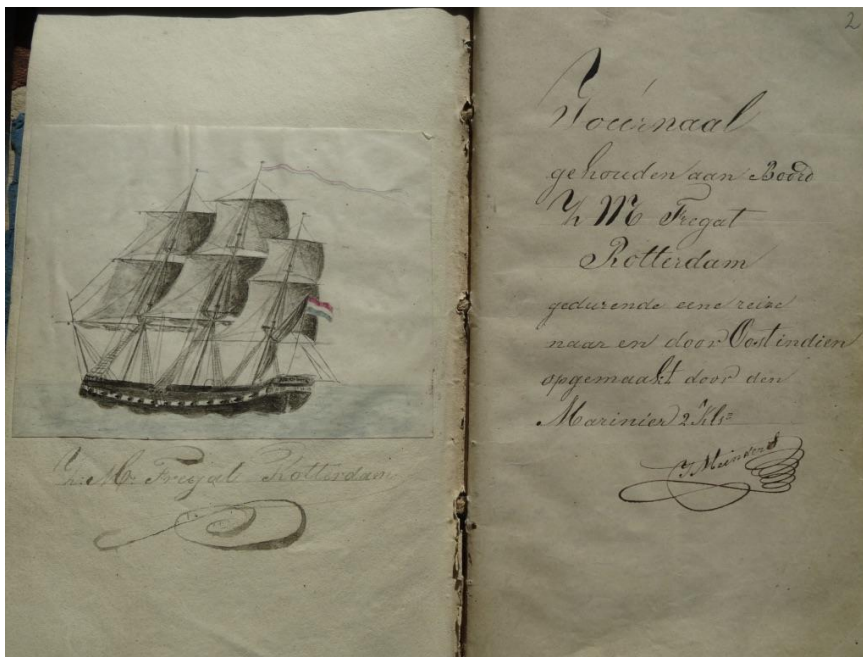 Z. M. Fregat Rotterdam
2
Journaal
gehouden aan Boord
Zr Ms Fregat
Rotterdam
gedurende eene reize
naar en door Oostindien
opgemaakt door den
Marinier 2e Klse
J Meinders